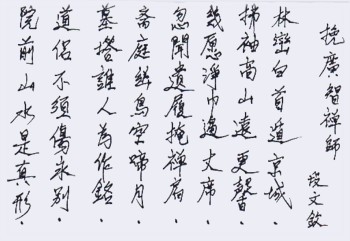 挽廣智禪師
段文欽
林巒白首遁京城.
拂袖高山遠更馨.
幾愿淨巾趨丈席.
忽聞遺履掩禪扃.
齋庭幽鳥空啼月.
墓塔誰人為作銘.
道侶不須傷永別.
院前山水是真形.